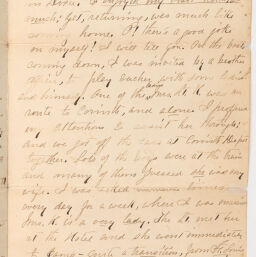 much; yet, returning, was much like
coming home. O! there's a good joke
on myself! I will tell you. On the boat
coming down, I was invited by a brother
officer to play Euchre with some ladies
and himself. One of the ladies, Mrs. H. was en
route to Corinth, and alone. I proffered
my attentions to assist her through,
and we got off the cars at Corinth Kasper
together. Lots of the boys were at the train
and many of them guessed she was my
wife. I was
every day for a week, when I was
Mrs. H. is a very lady. She Lt. met her
at the Hotel and she went immediately
to Camp - quite a transition, from St. Louis